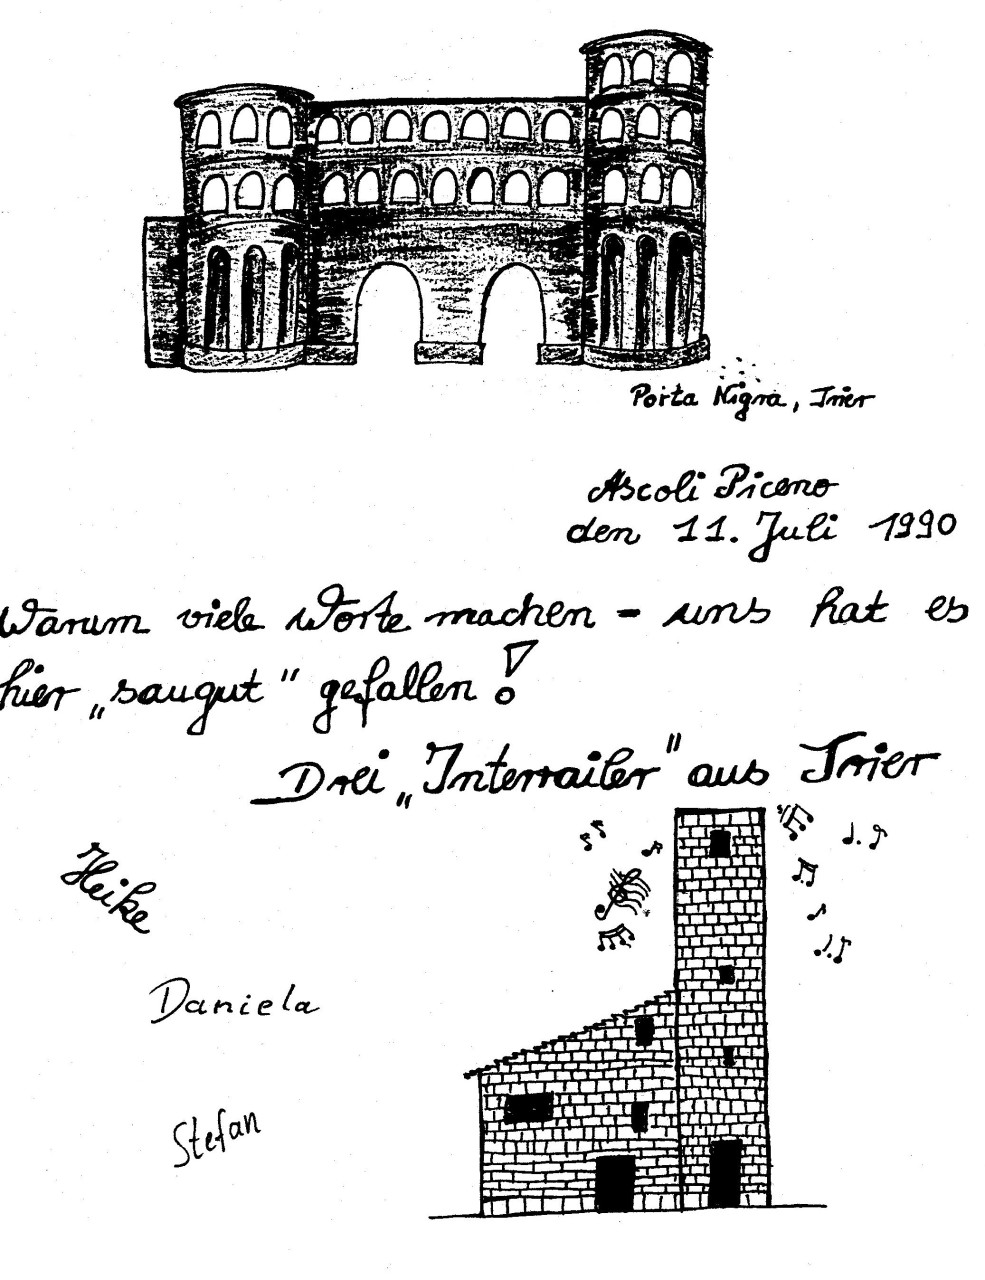 Porta Nigra, Trier
Ascoli Piceno
den 11. Juli 1990
Warum viele Worte machen - uns hat es
hier „saugut“ gefallen!
Drei „Interrailer“ aus Trier
Heike
Daniela
Stefan